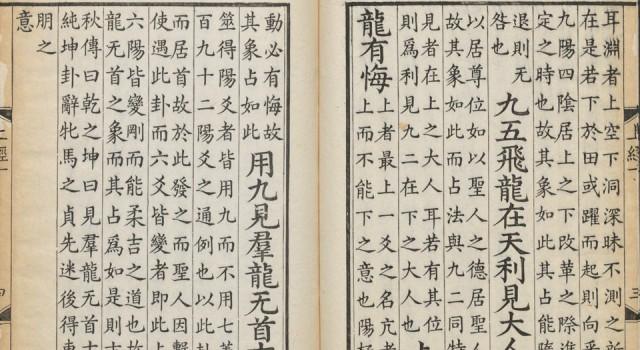 耳淵者上空下洞深昧不測之所
在是若下於田或躍而起則向乎
九陽四陰居上之下改革之際進
定之時也故其象如此其占能隨
退則无
咎也
九五飛龍在天利見大人
以居尊位如以聖人之德居聖
故其象如此而占法與九二同特
見者在上之大人耳若有其位
則爲利見九二在下之大人也
上
龍有悔
上者最上一爻之名亢者
上而不能下之意也陽極
動必有悔故
其象占如此
用九見羣龍无首吉
筮得陽爻者皆用九而不用七蓋
百九十二陽爻之通例也以此卦
而居首故於此發之而聖人因繫
使遇此卦而六爻皆變者即此
六陽皆變剛而能柔吉之道也故
龍无首之象而其占爲如是則吉
秋傳曰乾之坤曰見羣龍无首吉
純坤卦辭牝馬之貞先迷後得東
朋之
意